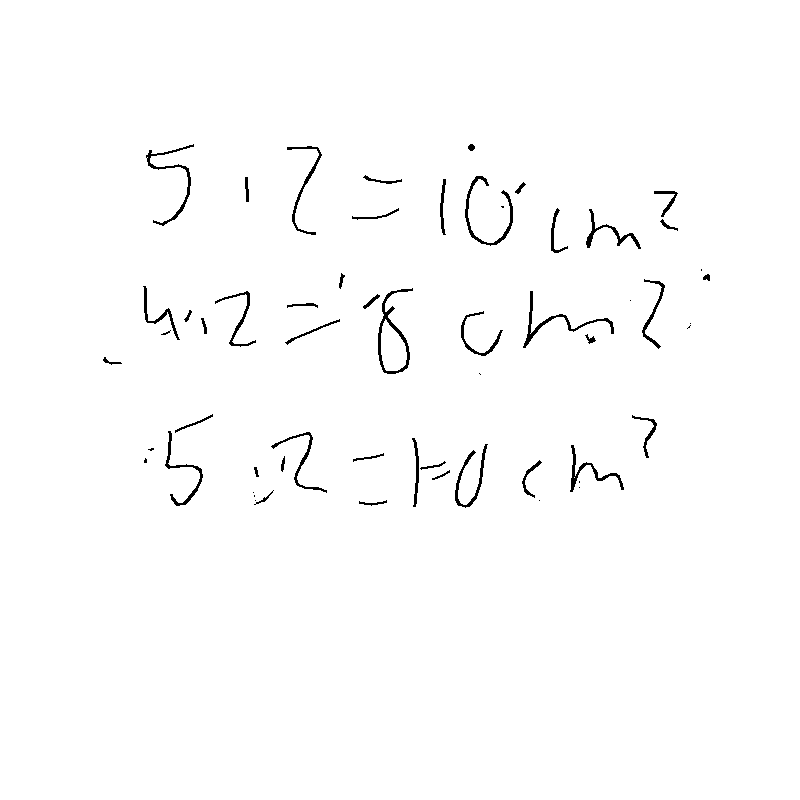 5 · 2 = 10 cm²
4 · 2 = 8 cm²
5 · 2 = 10 cm²